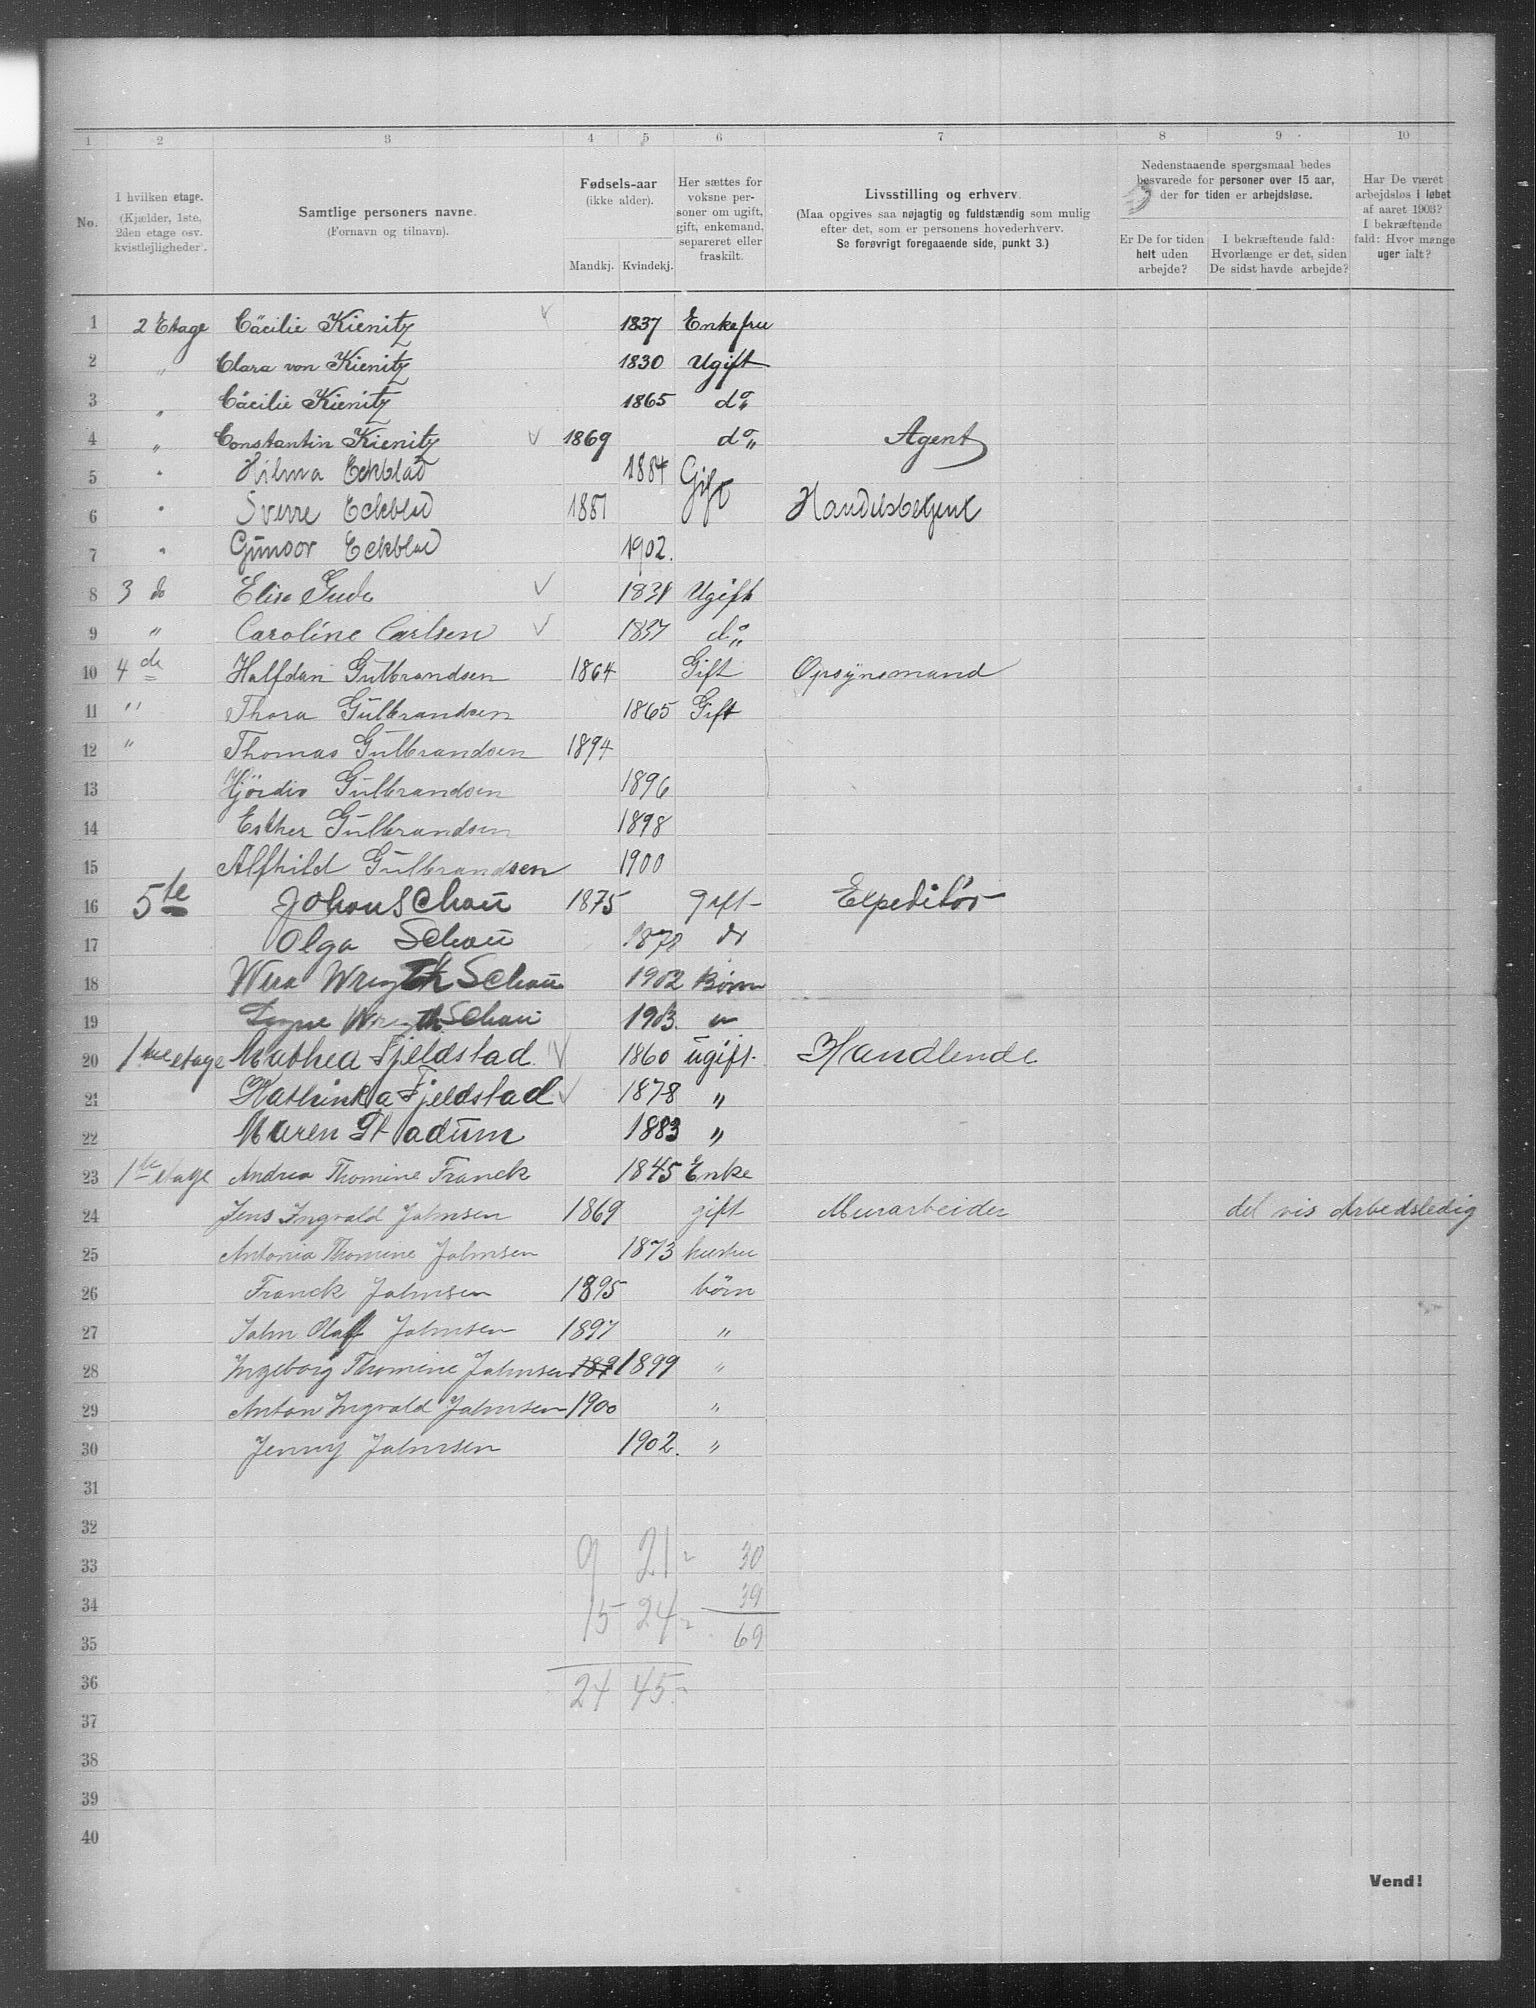 1 2 3 4 5 6 7 8 9 10
No.
I hvilken etage.
(Kjælder, 1ste,
2den etage osv.
kvistlejligheder).
Samtlige personers navne.
(Fornavn og tilnavn).
Fødsels-aar
(ikke alder).
Mandkj. Kvindekj.
Her sættes for
voksne per-
soner om ugift,
gift, enkemand,
separeret eller
fraskilt.
Livsstilling og erhverv.
(Maa opgives saa nøjagtig og fuldstændig som mulig
efter det, som er personens hovederhverv.
Se forøvrigt foregaaende side, punkt 3.)
Nedenstaaende spørgsmaal bedes
besvarede for personer over 15 aar,
der for tiden er arbejdsløse.
Er De for tiden
helt uden
arbejde?
I bekræftende fald:
Hvorlænge er det, siden
De sidst havde arbejde?
Har De været
arbejdsløs i løbet
af aaret 1903?
I bekræftende
fald: Hvor mange
uger ialt?
1 2 Etage Cäcilie Kienitz 1837 Enkefru
2 " Clara von Kienitz 1830 Ugift
3 " Cäcilie Kienitz 1865 do"
4 " Constantin Kienitz 1869 do" Agent
5 " Hilma Eckblad 1884 Gift
6 " Sverre Eckblad 1881 Gift Handelsbetjent
7 " Gunvor Eckblad 1902.
8 3 do Elise Gude 1831 Ugift
9 " Caroline Carlsen 1837 do"
10 4 de Halfdan Gulbrandsen 1864 Gift Opsynsmand
11 " Thora Gulbrandsen 1865 Gift
12 " Thomas Gulbrandsen 1894
13 Hjördis Gulbrandsen 1896
14 Esther Gulbrandsen 1898
15 Alfhild Gulbrandsen 1900
16 5te Johan Schau 1875 gift Expeditør
17 Olga Schau do
18 Schau 1902 Børn
19 Schau 1903 "
20 1ste etage Mathea Fjeldstad 1860 ugift. Handlende
21 Kathinka Fjeldstad 1878 "
22 Maren Stadum 1883 "
23 1ste etage Andrea Thomine Franck 1845 Enke
24 Jens Ingvald Johnsen 1869 gift Murarbeider del vis Arbedsledig
25 Antonia Thomine Johnsen 1873 hustru
26 Franck Johnsen 1895 börn
27 John Olaf Johnsen 1897 "
28 Ingeborg Thomine Johnsen 189 1899 "
29 Anton Ingvald Johnsen 1900 "
30 Jenny Johnsen 1902. "
31
32
33 9 21 = 30
34 15 24 = 39
35 69
36 24 45 =
37
38
39
40
Vend!